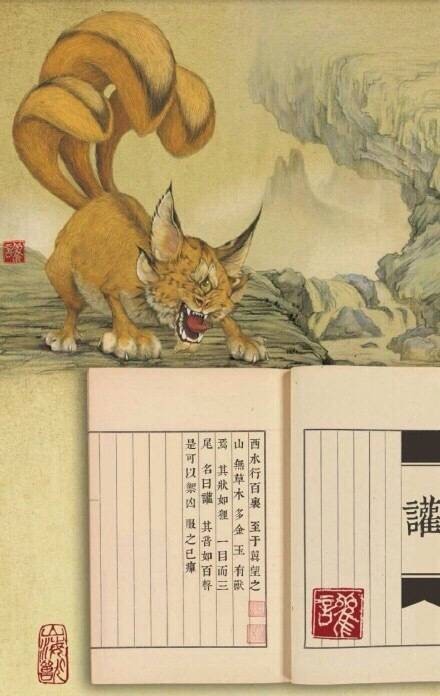 讙
西水行百裏 至于翼望之
山 無草木 多金 玉 有獸
焉 其狀如狸 一目而三
尾 名曰讙 其音如百聲
是可以禦凶 服之已癉
讙